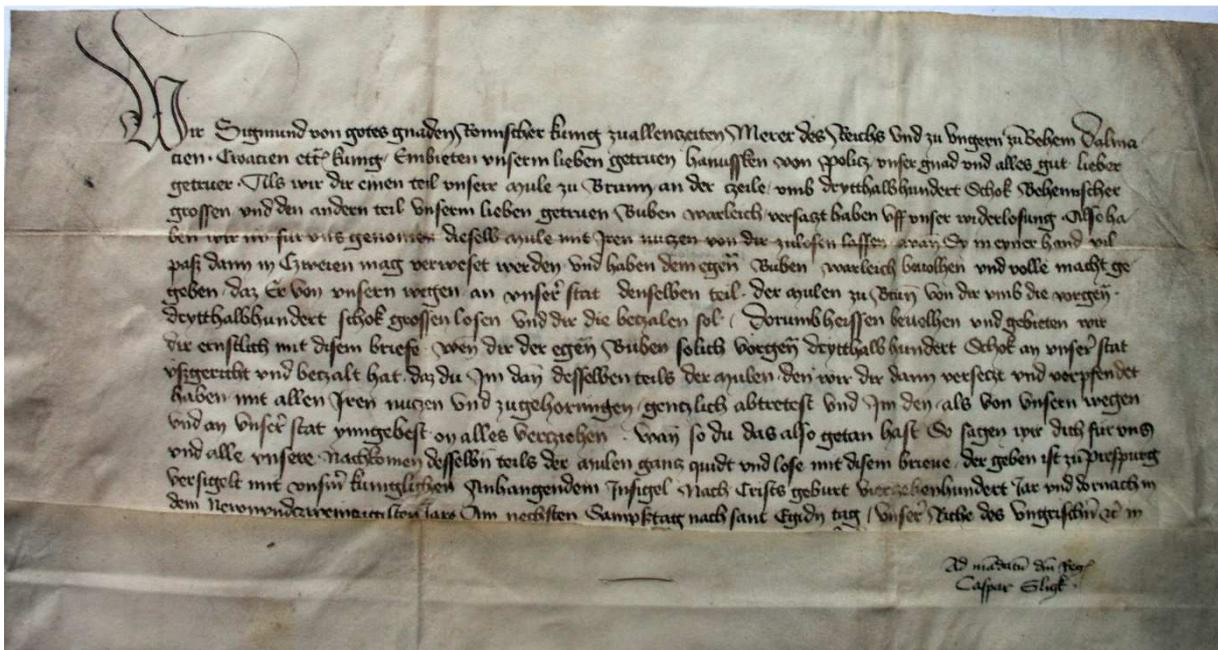 Wir Sigmund von gotes gnaden Romischer kunig zuallenczeiten Merer des Reichs und zu Ungern zu Behem Dalma
cien Croacien etc kunig Embieten unserm lieben getruen hanussken von Policz unser gnad und alles gut lieber
getruer Als wir dir einen teil unserr mule zu Brunn an der czeile umb drytthalbhundert Schok Behemischer
grossen und den andern teil unserm lieben getruen Buben warleich versaczt haben uff unser widerlosung Also ha
ben wir uns genomen dieselb mule mit Iren nuczen von dir zulosen lassen Er in eyner hand vil
pasz dann in Czweien mag verweset werden und haben dem egen Buben warleich bevolhen und volle macht ge
geben daz Er von unsern wegen an unser stat denselben teil der mulen zu Brun von dir umb die vorgen
drytthalbhundert schok grossen losen und dir die beczalen sol Dorumb heissen bevelhen und gebieten wir
dir ernstlich mit disem briefe wen dir der egen Buben solich vorgen drytthalb hundert Schok an unser stat
uszgericht und beczalt hat daz du Im dan desselben teils der mulen den wir dir dann verseczt und verpfendet
haben mit allen Iren nuczen und zugehorungen genczlich abtretest und Im den als von unsern wegen
und an unser stat ynngebest on alles verczihen wan so du das also getan hast So sagen wir dich fur uns
und alle unsere Nachkomen desselben teils der mulen gancz quidt und lose mit disem brieve der geben ist zu Prespurg
versigelt mit unserm kuniglichen Anhangendem Insigel Nach Crists geburt vierczehenhundert Jar und dornach in
dem Newnundczweinczigisten Jare Am nechsten Sampsztag nach sant Egidy tag unser Riche des Ungrischen etc in
Ad mandatum dni Reg
Caspar Sligk